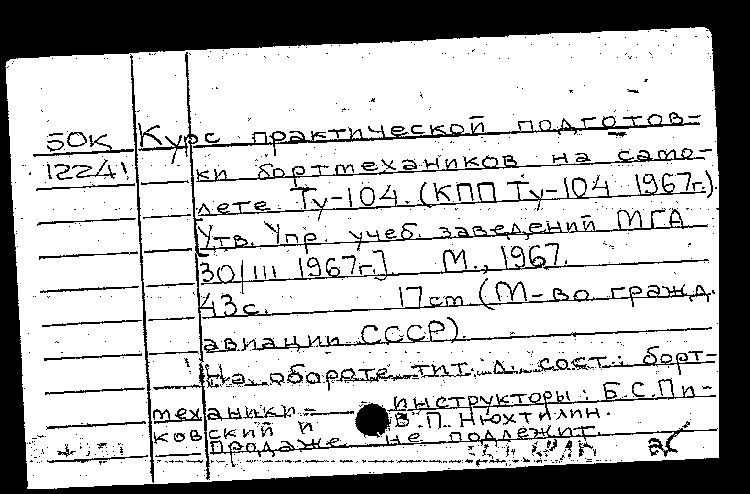 50К Курс практической подготов=
12241 ки бортмехаников на само-
лете Ту-104. (КПП Ту-104 1967г.)
Утв. Упр. учеб. заведений МГА
30/III 1967г.] М., 1967.
43с. 17cm (М-во гражд.
авиации СССР).
На обороте тит. л. сост.: борт=
механики= инструкторы: Б.С.Пи-
ковский и В.П. Нюхтилин.
Продаже не подлежит.